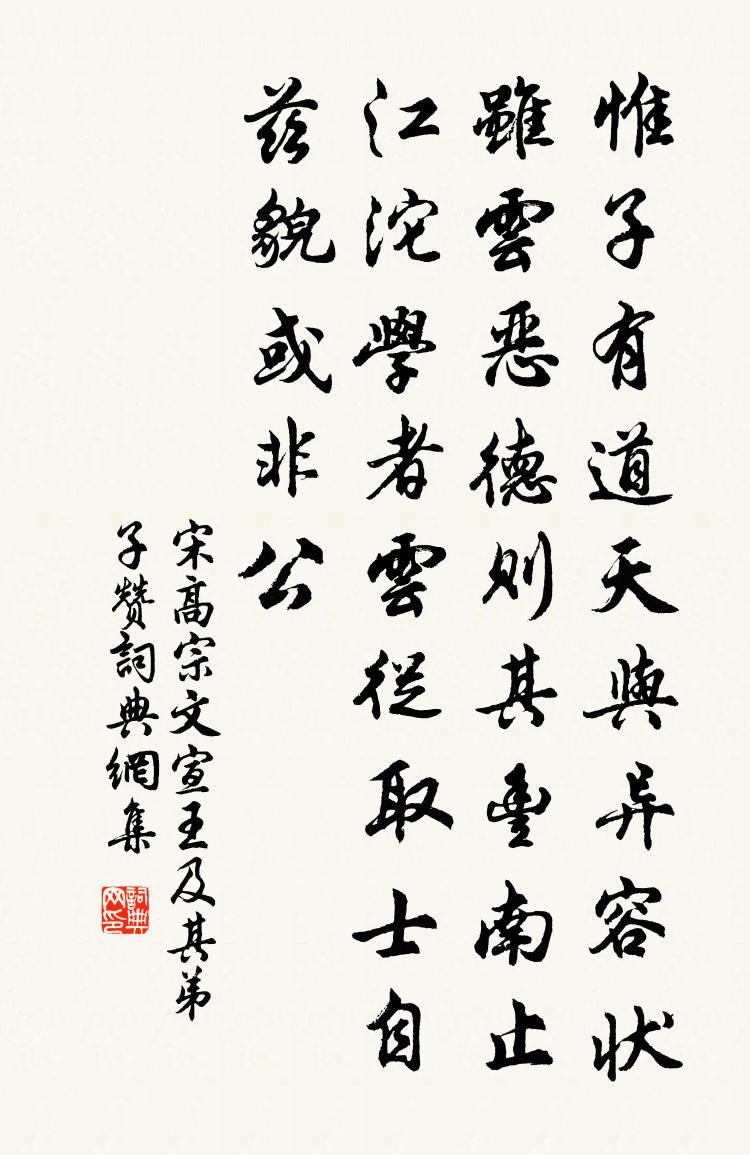 惟子有道天與异容狀
雖雲惡德則其豐南止
江沱學者雲從取士自
茲貌或非公
宋高宗文宣王及其弟
子贊詞典網集
詞典網印